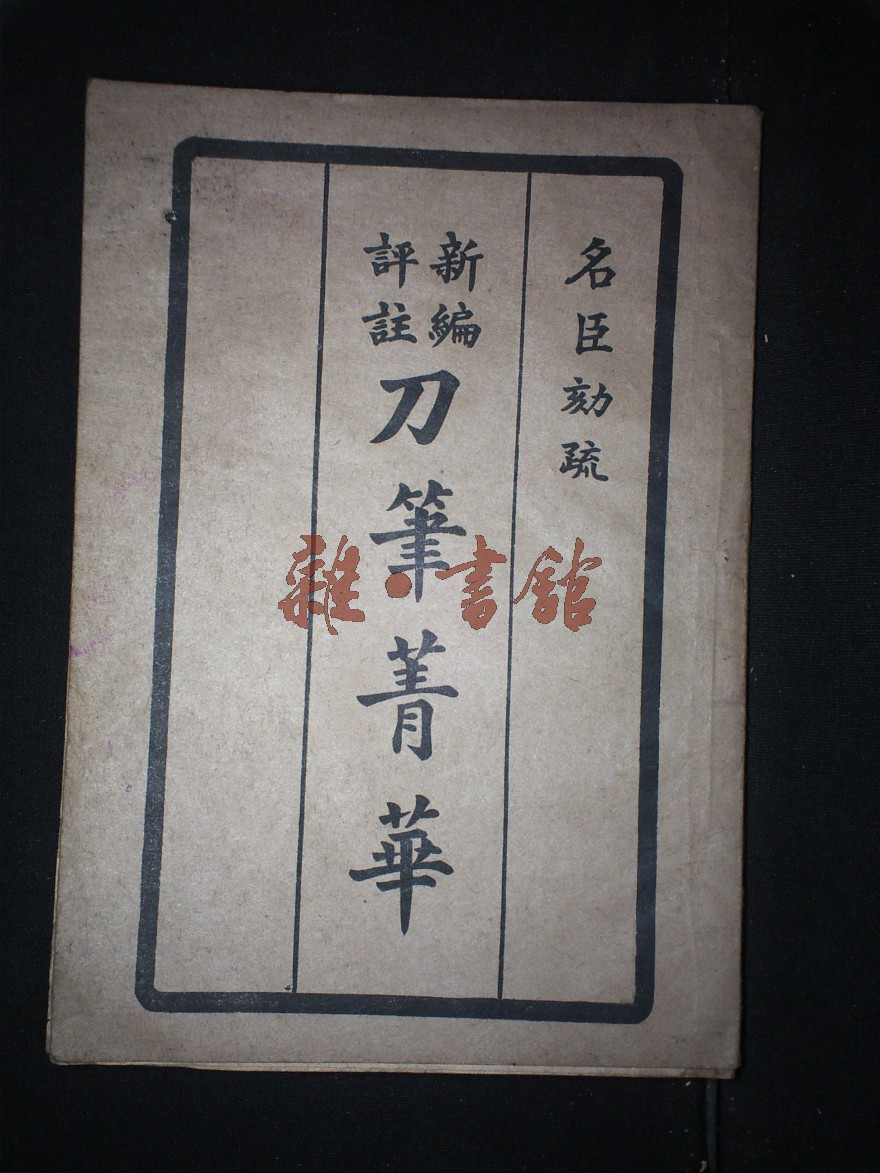 名臣劾疏
新編
評註
刀筆菁華
雜·書館